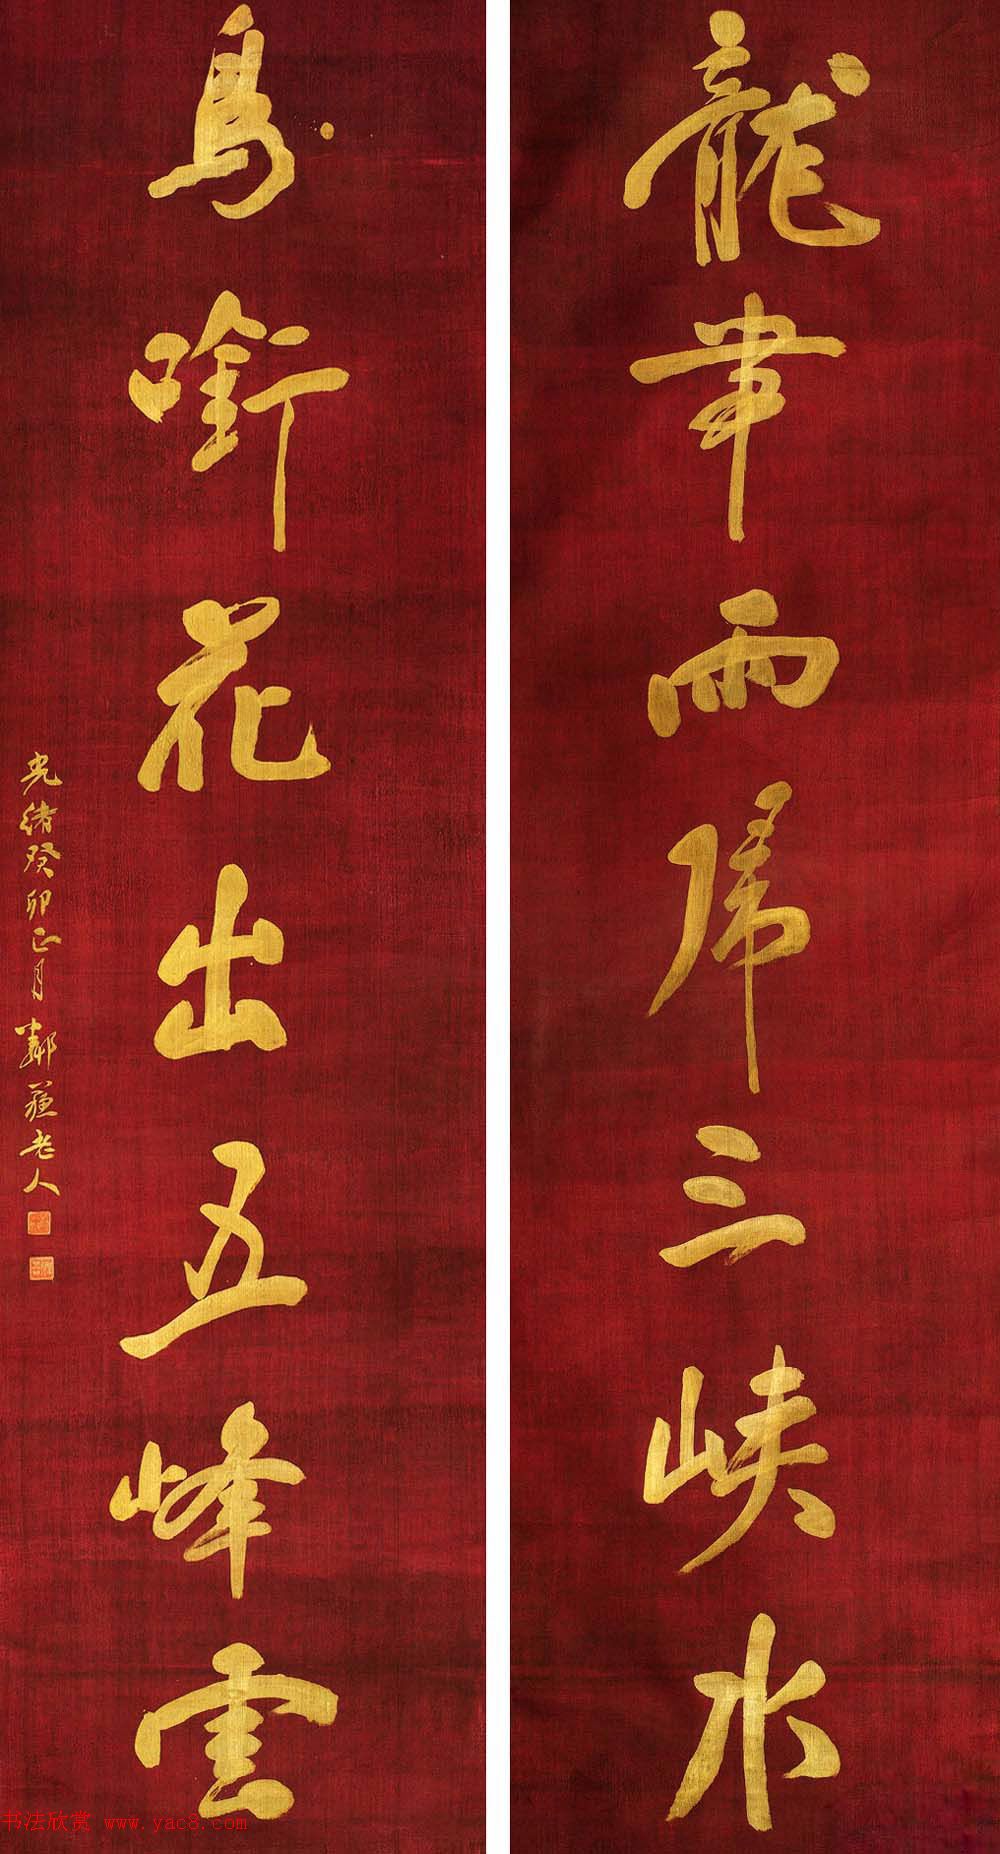 龍卷雨歸三峽水
鳥銜花出五峰雲
光緒癸卯正月鄰蘇老人
书法欣赏 www.yac8.com